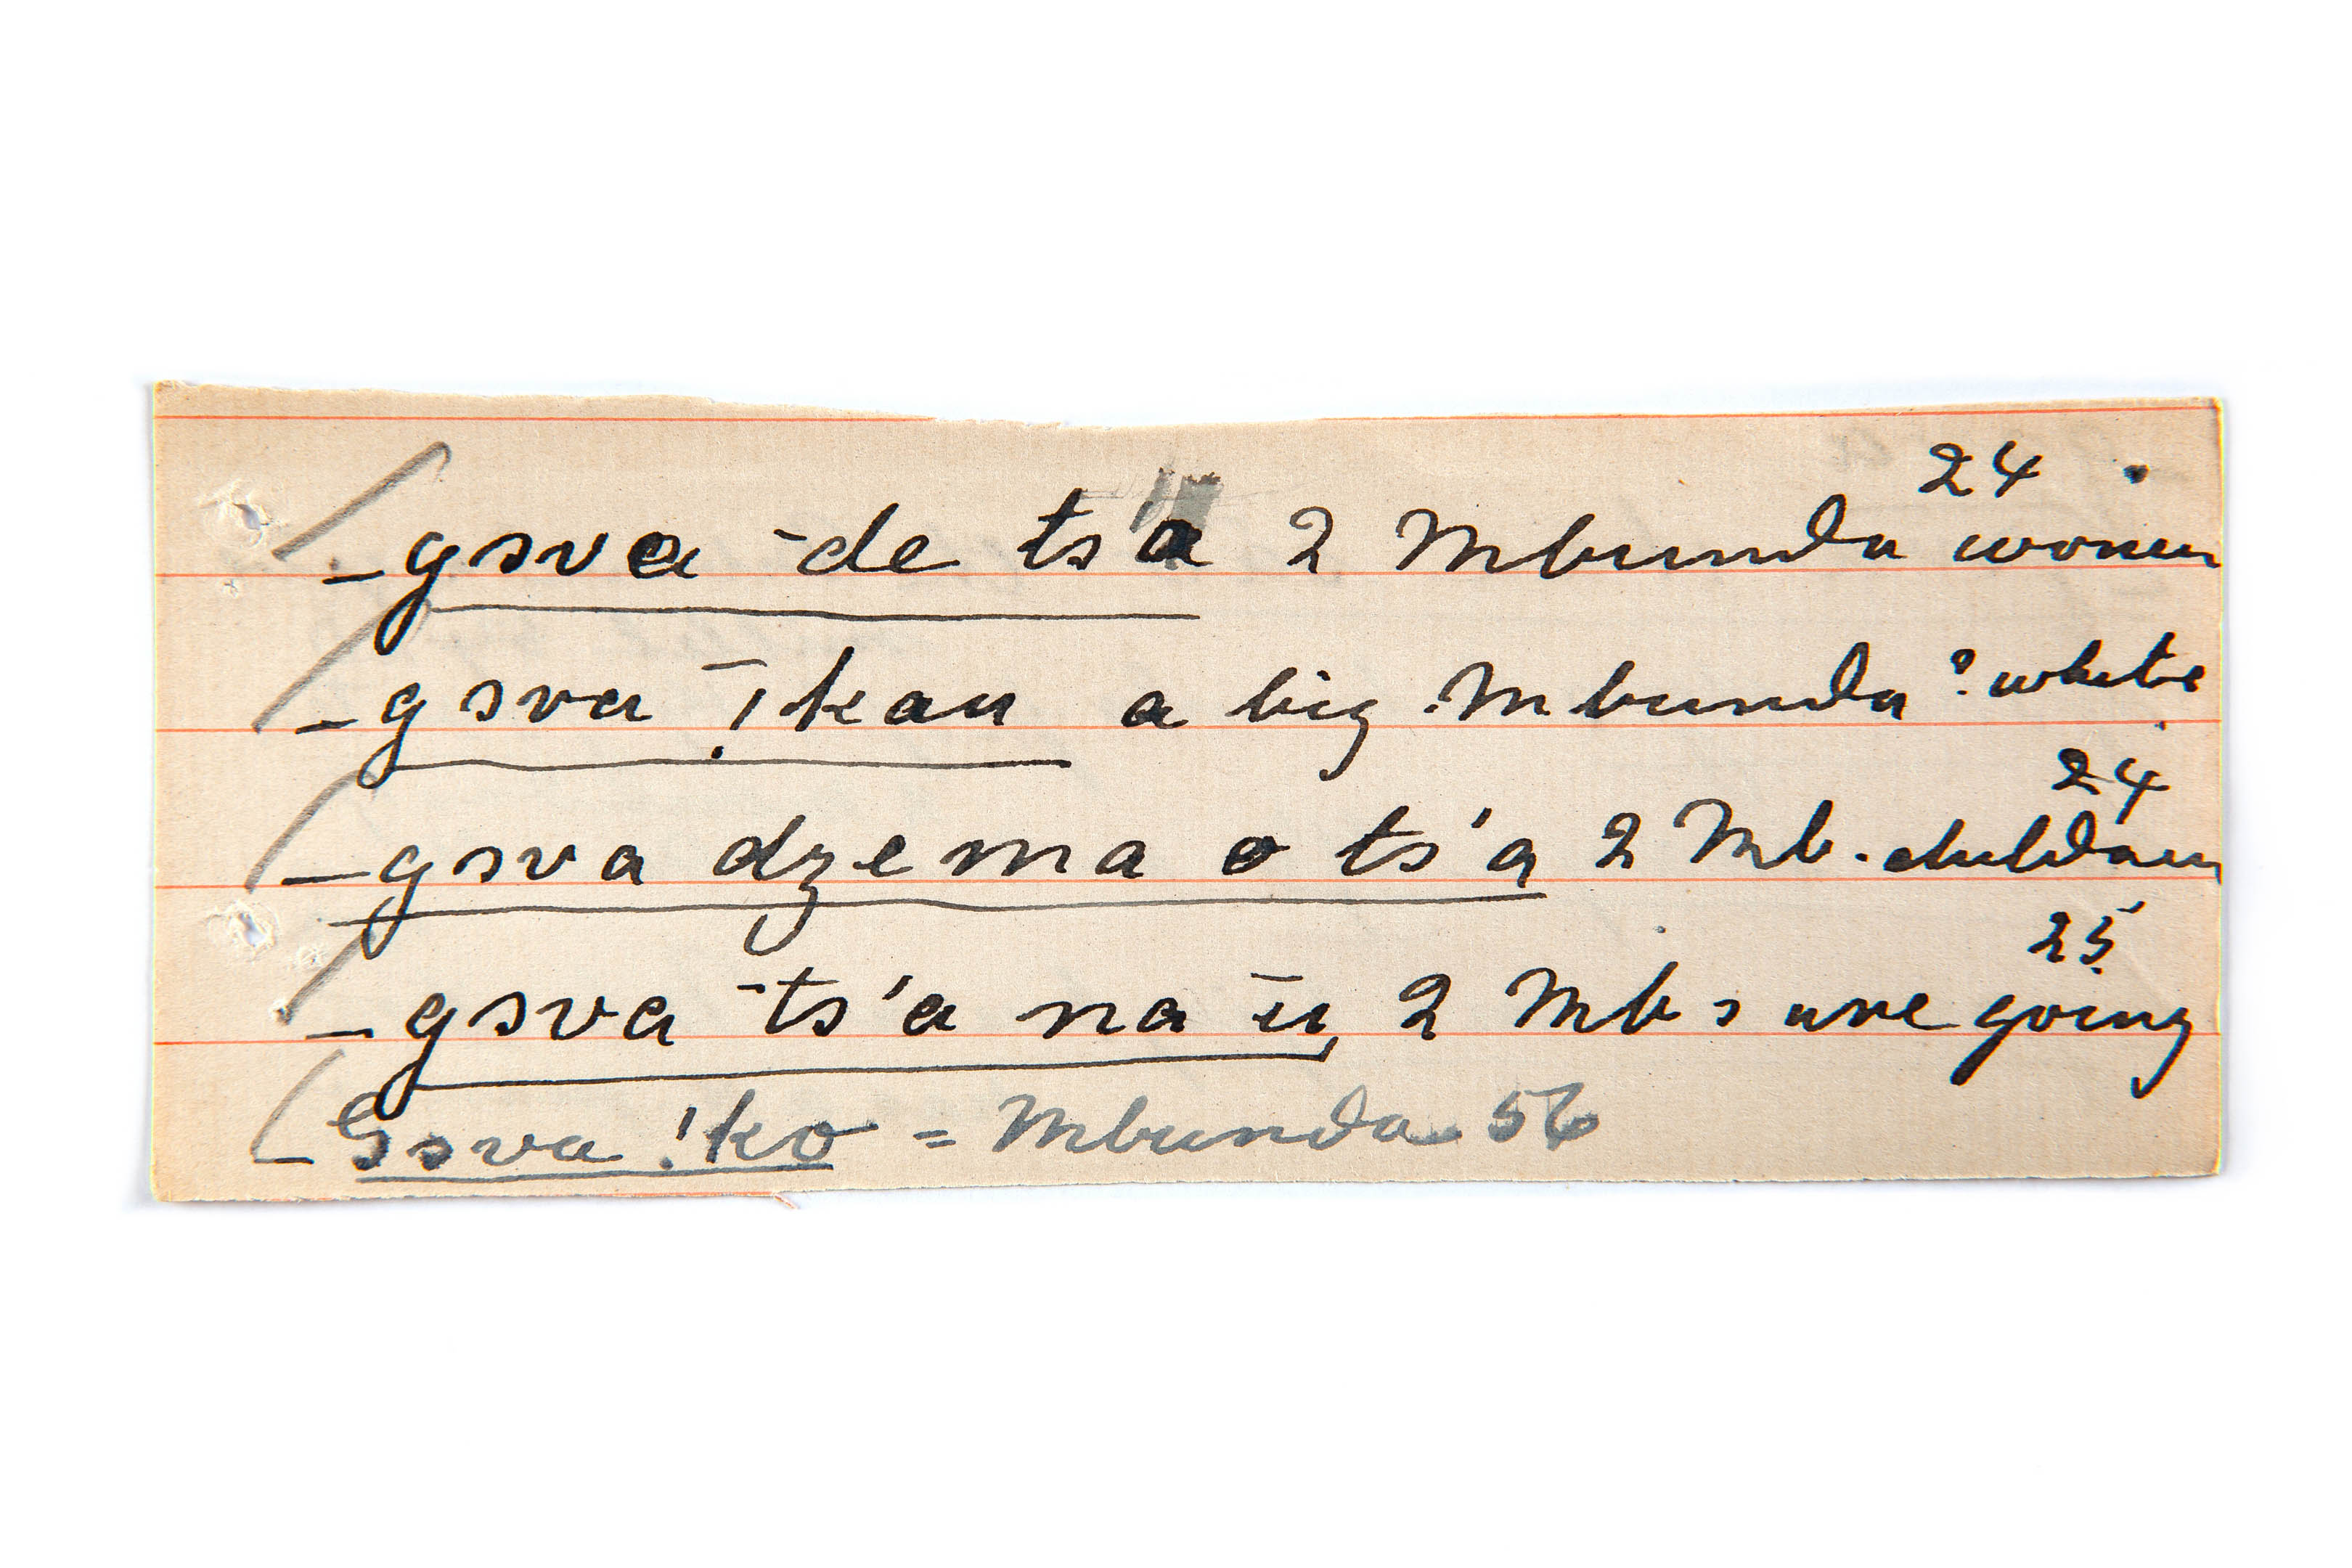 _gɔva -de ts'a 2 Mbunda women 24
_gɔva !̄kau a big Mbunda ? white
_gɔva dzema o ts'a 2 Mb. children 24
_gɔva -ts'a na ū, 2 Mbs are going 25
Gɔva !ko = Mbunda 56